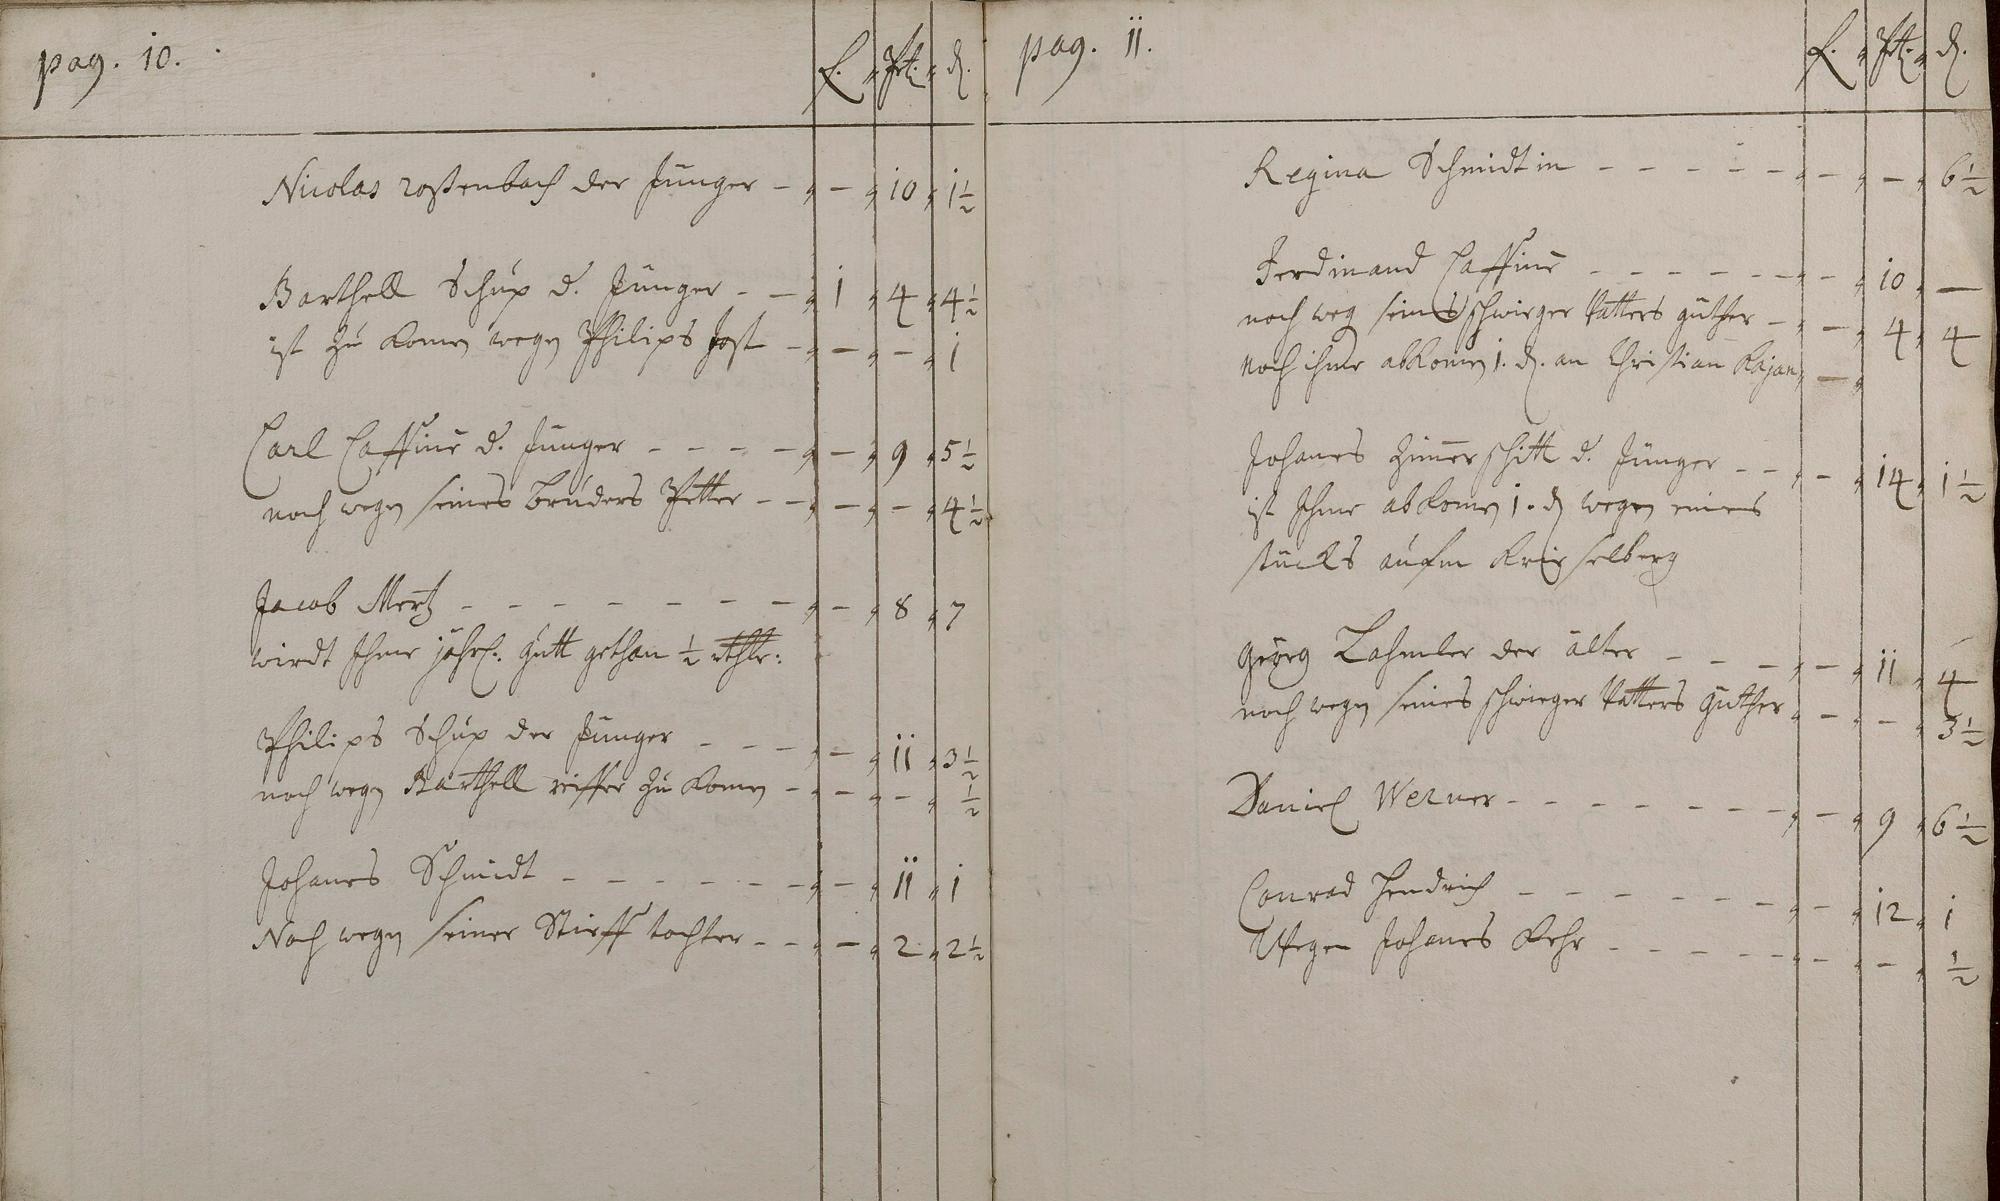 pag. 10.
f. Pt. d.
Nicolas roßenbach der Junger - - 10 1½
Barthell Schup d. Junger - - 1 4 4½
ist zu komen wegen Philips Jost - - - 1
Carl Cassine d. Junger - - - - - 9 5½
noch wegen seines bruders Petter - - - - 4½
Jacob Mertz - - - - - - - - 8 7
wirdt Ihme jährl. gutt gethan ½
Philips Schup der Junger - - - - 11 3½
noch wegen Barthell reiffer zu komen - - - ½
Johanes Schmidt - - - - - - - 11 1
Noch wegen seiner Stieff tochter - - - 2 2½
pag. 11.
f. Pt. d.
Regina Schmidtin - - - - - - - 6½
Ferdinand Cassine - - - - - - - 10 -
noch weg seines schwieger Vatters guther - - 4 4
noch ihme abkomen 1. d. an Christian Kajan -
Johanes Zimerschitt d. Jünger - - - 14 1½
ist Ihme abkomen 1. d wegen eines
stucks aufm
Georg Lahmler der älter - - - - 11 4
noch wegen seines schwieger Vatters guther - - 3½
Daniel Werner - - - - - - - - 9 6½
Conrad Hendrich - - - - - - - 12 1
Wegen Johanes Kehr - - - - - - - ½